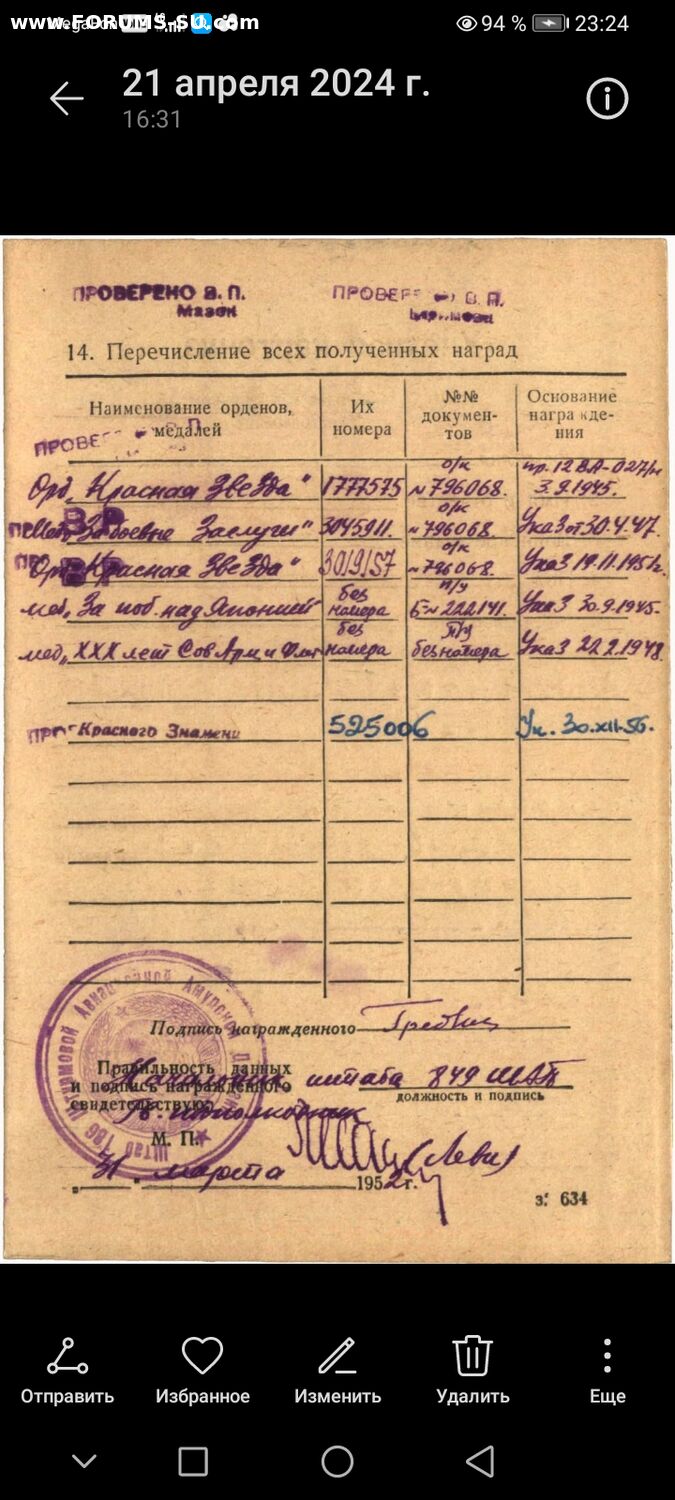 www.FORUMS-SU.com
94 % 23:24
21 апреля 2024 г.
16:31
ПРОВЕРЕНО В. П. ПРОВЕР В. П.
Мазок
14. Перечисление всех полученных наград
Наименование орденов, медалей Их номера №№ документов Основание награждения
ПРОВЕР В П
Орд. „Красная Звезда" 1777575 о/к №796068. пр. 12 ВА-027/н 3.9.1945.
Мед. „За боевые Заслуги" 3045911. о/к №796068. Указ от 30.4.47.
Орд. „Красная Звезда" 30/9/57 о/к №796068. Указ 19.11.1951г.
мед. „За поб. над Японией" без номера п/у Б№222141. Указ 30.9.1945.
мед. „XXX лет Сов Арм и Фл" без номера п/у без номера Указ 22.2.1948
ПРО Красного Знамени 525006 Ук. 30.XII.56.
Подпись награжденного
Правильность данных
и подпись награжденного
свидетельствую:
Начальник штаба 849 ШАП
должность и подпись
Гв. подполковник
М. П.
(Левин)
„31" марта 1952 г.
з. 634
Отправить Избранное Изменить Удалить Еще